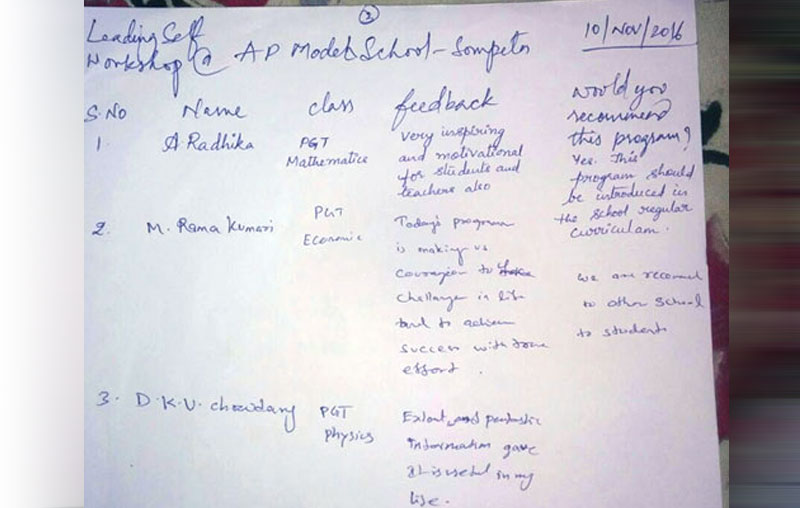 3
Leading Self
Workshop @ AP Model School - Sompeta
10/Nov/2016
S.No Name class feedback would you recommend this program?
1. A. Radhika
PGT
Mathematics
Very inspiring
and motivational
for students and
teachers also
Yes. This
program should
be introduced in
the school regular
curriculam.
2. M. Rama Kumari
PGT
Economic
Today's program
is making us
courageou to
challenge in life
to achieve
success with some
effort.
we are recomend
to other School
to students
3. D.K.V. chowdary
PGT
Physics
and
information gave
It is useful in my
life.